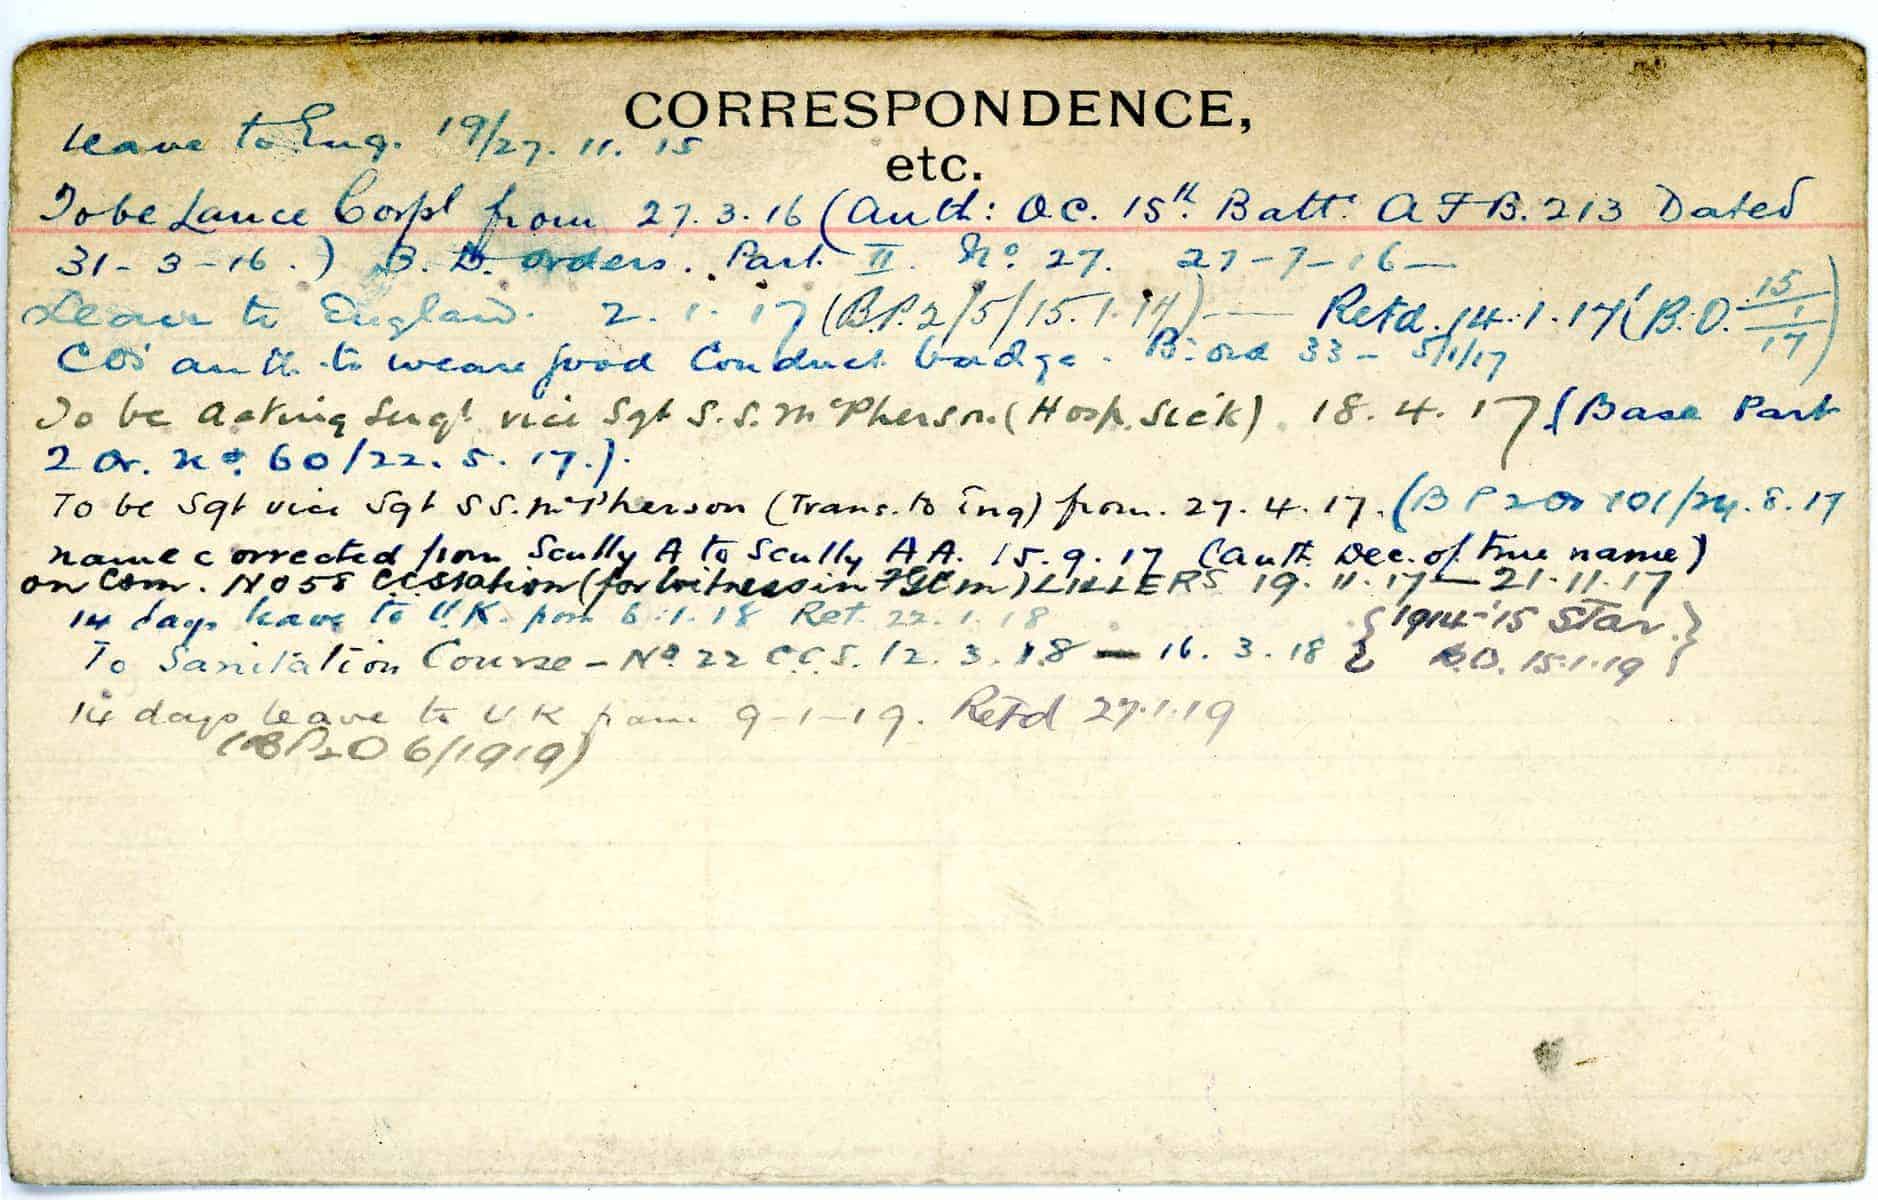 CORRESPONDENCE,
etc.
Leave to Eng. 19/27. 11. 15
To be Lance Corpl from 27.3.16 (Auth: O.C. 15th Batt. A F B. 213 Dated
31-3-16.) B. D. orders. Part II. No. 27. 27-7-16-
Leave to England. 2. 1. 17 (B.P.2/5/15.1.17) — Retd. 14.1.17 (B.O. 15/1/17)
COs auth to wear good Conduct badge. B. ord 33 - 5/1/17
To be Acting Sergt vice Sgt S.S. McPherson. (Hosp. Sick). 18. 4. 17 (Base Part
2 Or. No. 60/22. 5. 17.).
To be Sgt vice Sgt S S. McPherson (Trans. to Eng) from. 27. 4. 17. (B P 2 Or 101/24. 8. 17
name corrected from Scully A to Scully A A. 15. 9. 17 (auth Dec. of true name)
on Com. No 58 C.C. Station (for Witness in FGCM) LILLERS 19. 11. 17 — 21. 11. 17
14 days leave to U.K. from 6.1.18 Ret. 22. 1. 18 {1914-'15 Star}
To Sanitation Course - No. 22 C.C.S. 12. 3. 18 — 16. 3. 18 { 15.1.19 }
14 days leave to U K from 9-1-19. Retd 27.1.19
(BP2O 6/1919)